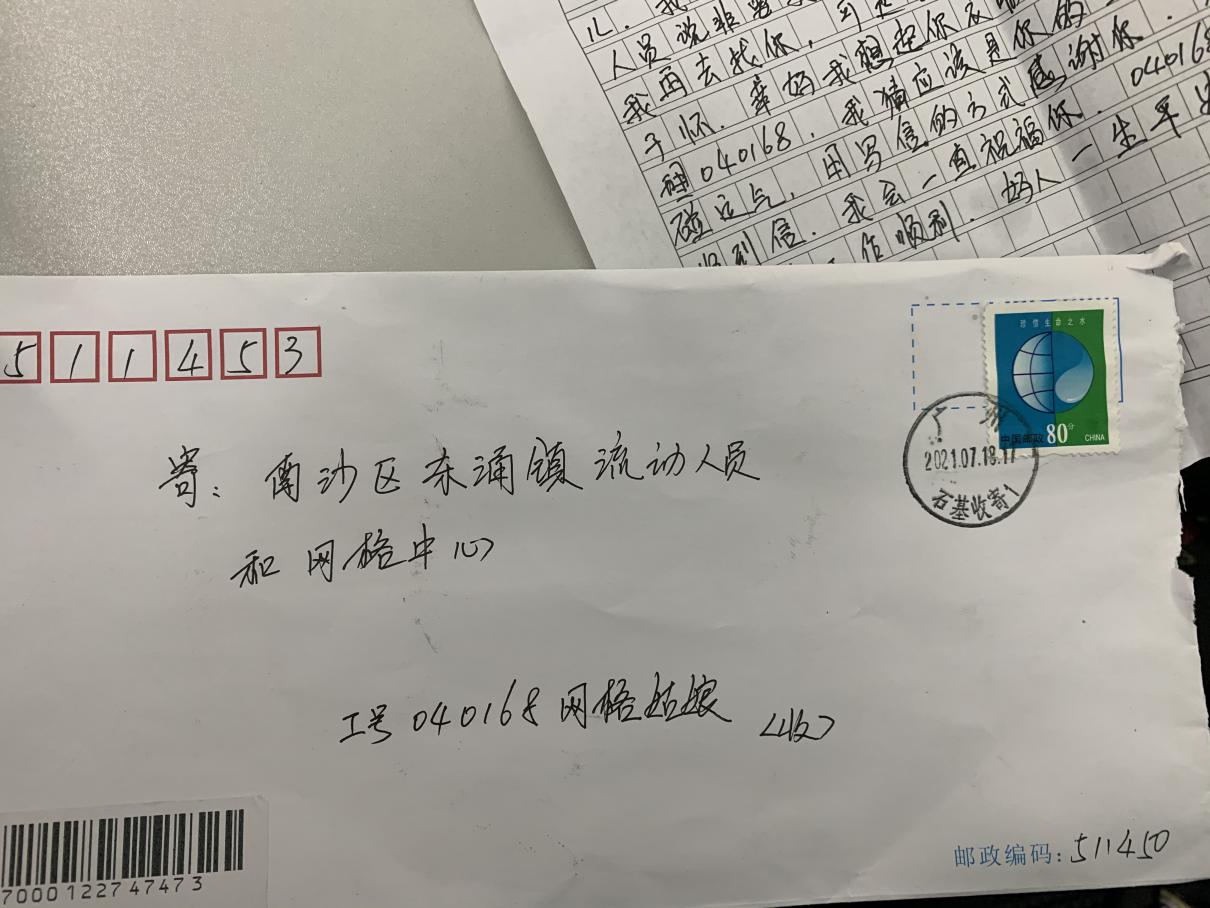 儿.我
人员说非
我再去找你,可
子怀.幸好我想起你衣服
碼040168,我猜应该是你的
碰运气,用写信的方式感谢你.040168
收到信.我会一直祝福你.
作顺利.好人一生平
511453
珍惜生命之水
中国邮政 80分 CHINA
广州
2021.07.18.17
石基收寄1
寄:南沙区东涌镇流动人员
和网格中心
工号040168网格姑娘(收)
7000122747473
邮政编码:511450